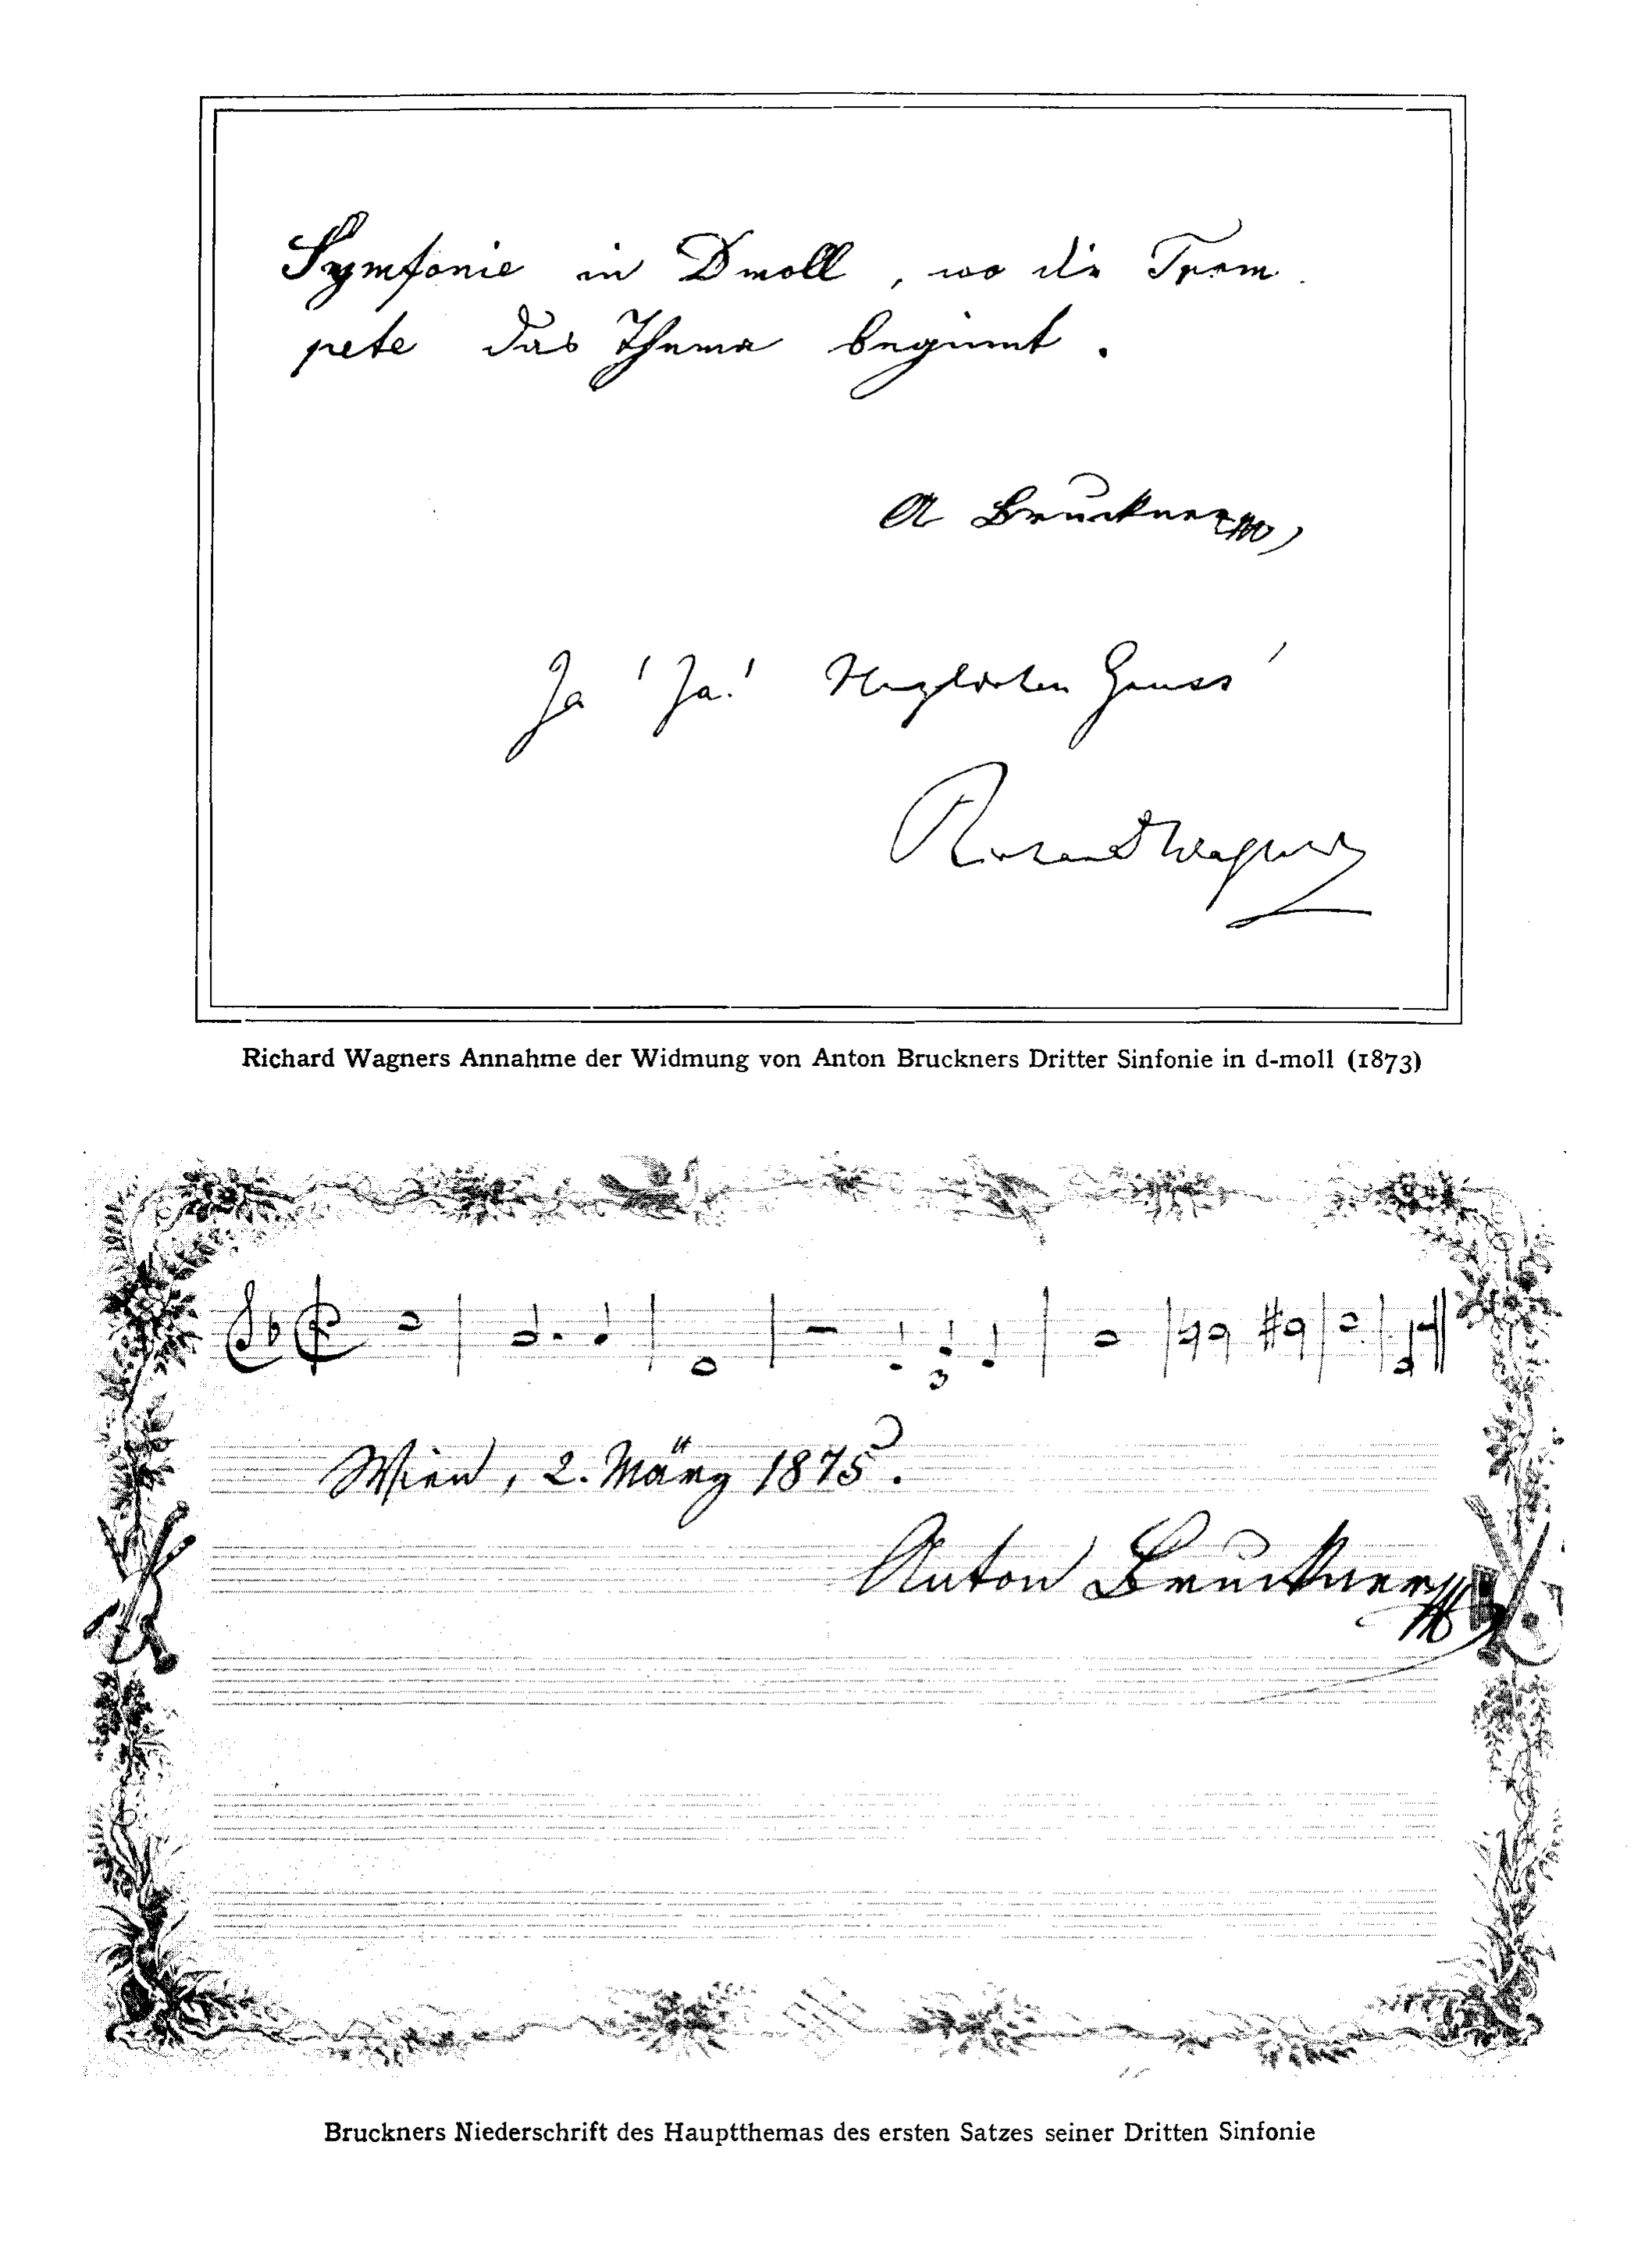 Symfonie in Dmoll, wo die Trom
pete das Thema beginnt.
A Bruckner
Ja! Ja! Herzlichen Gruss!
Richard Wagner
Richard Wagners Annahme der Widmung von Anton Bruckners Dritter Sinfonie in d-moll (1873)
3
Wien, 2. März 1875.
Anton Bruckner
Bruckners Niederschrift des Hauptthemas des ersten Satzes seiner Dritten Sinfonie